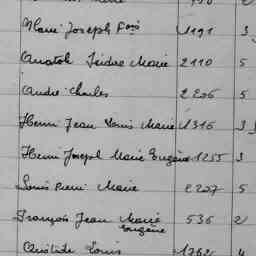 Marie Joseph Fois 1191 3
Anatole Isidre Marie 2110 5
André Charles 2206 5
Henri Jean Louis Marie 1316 3
Henri Joseph Marie Eugène 1255 3
Louis Pierre Marie 2207 5
François Jean Marie 536 2
Eugène
Aristide Louis 1762 4